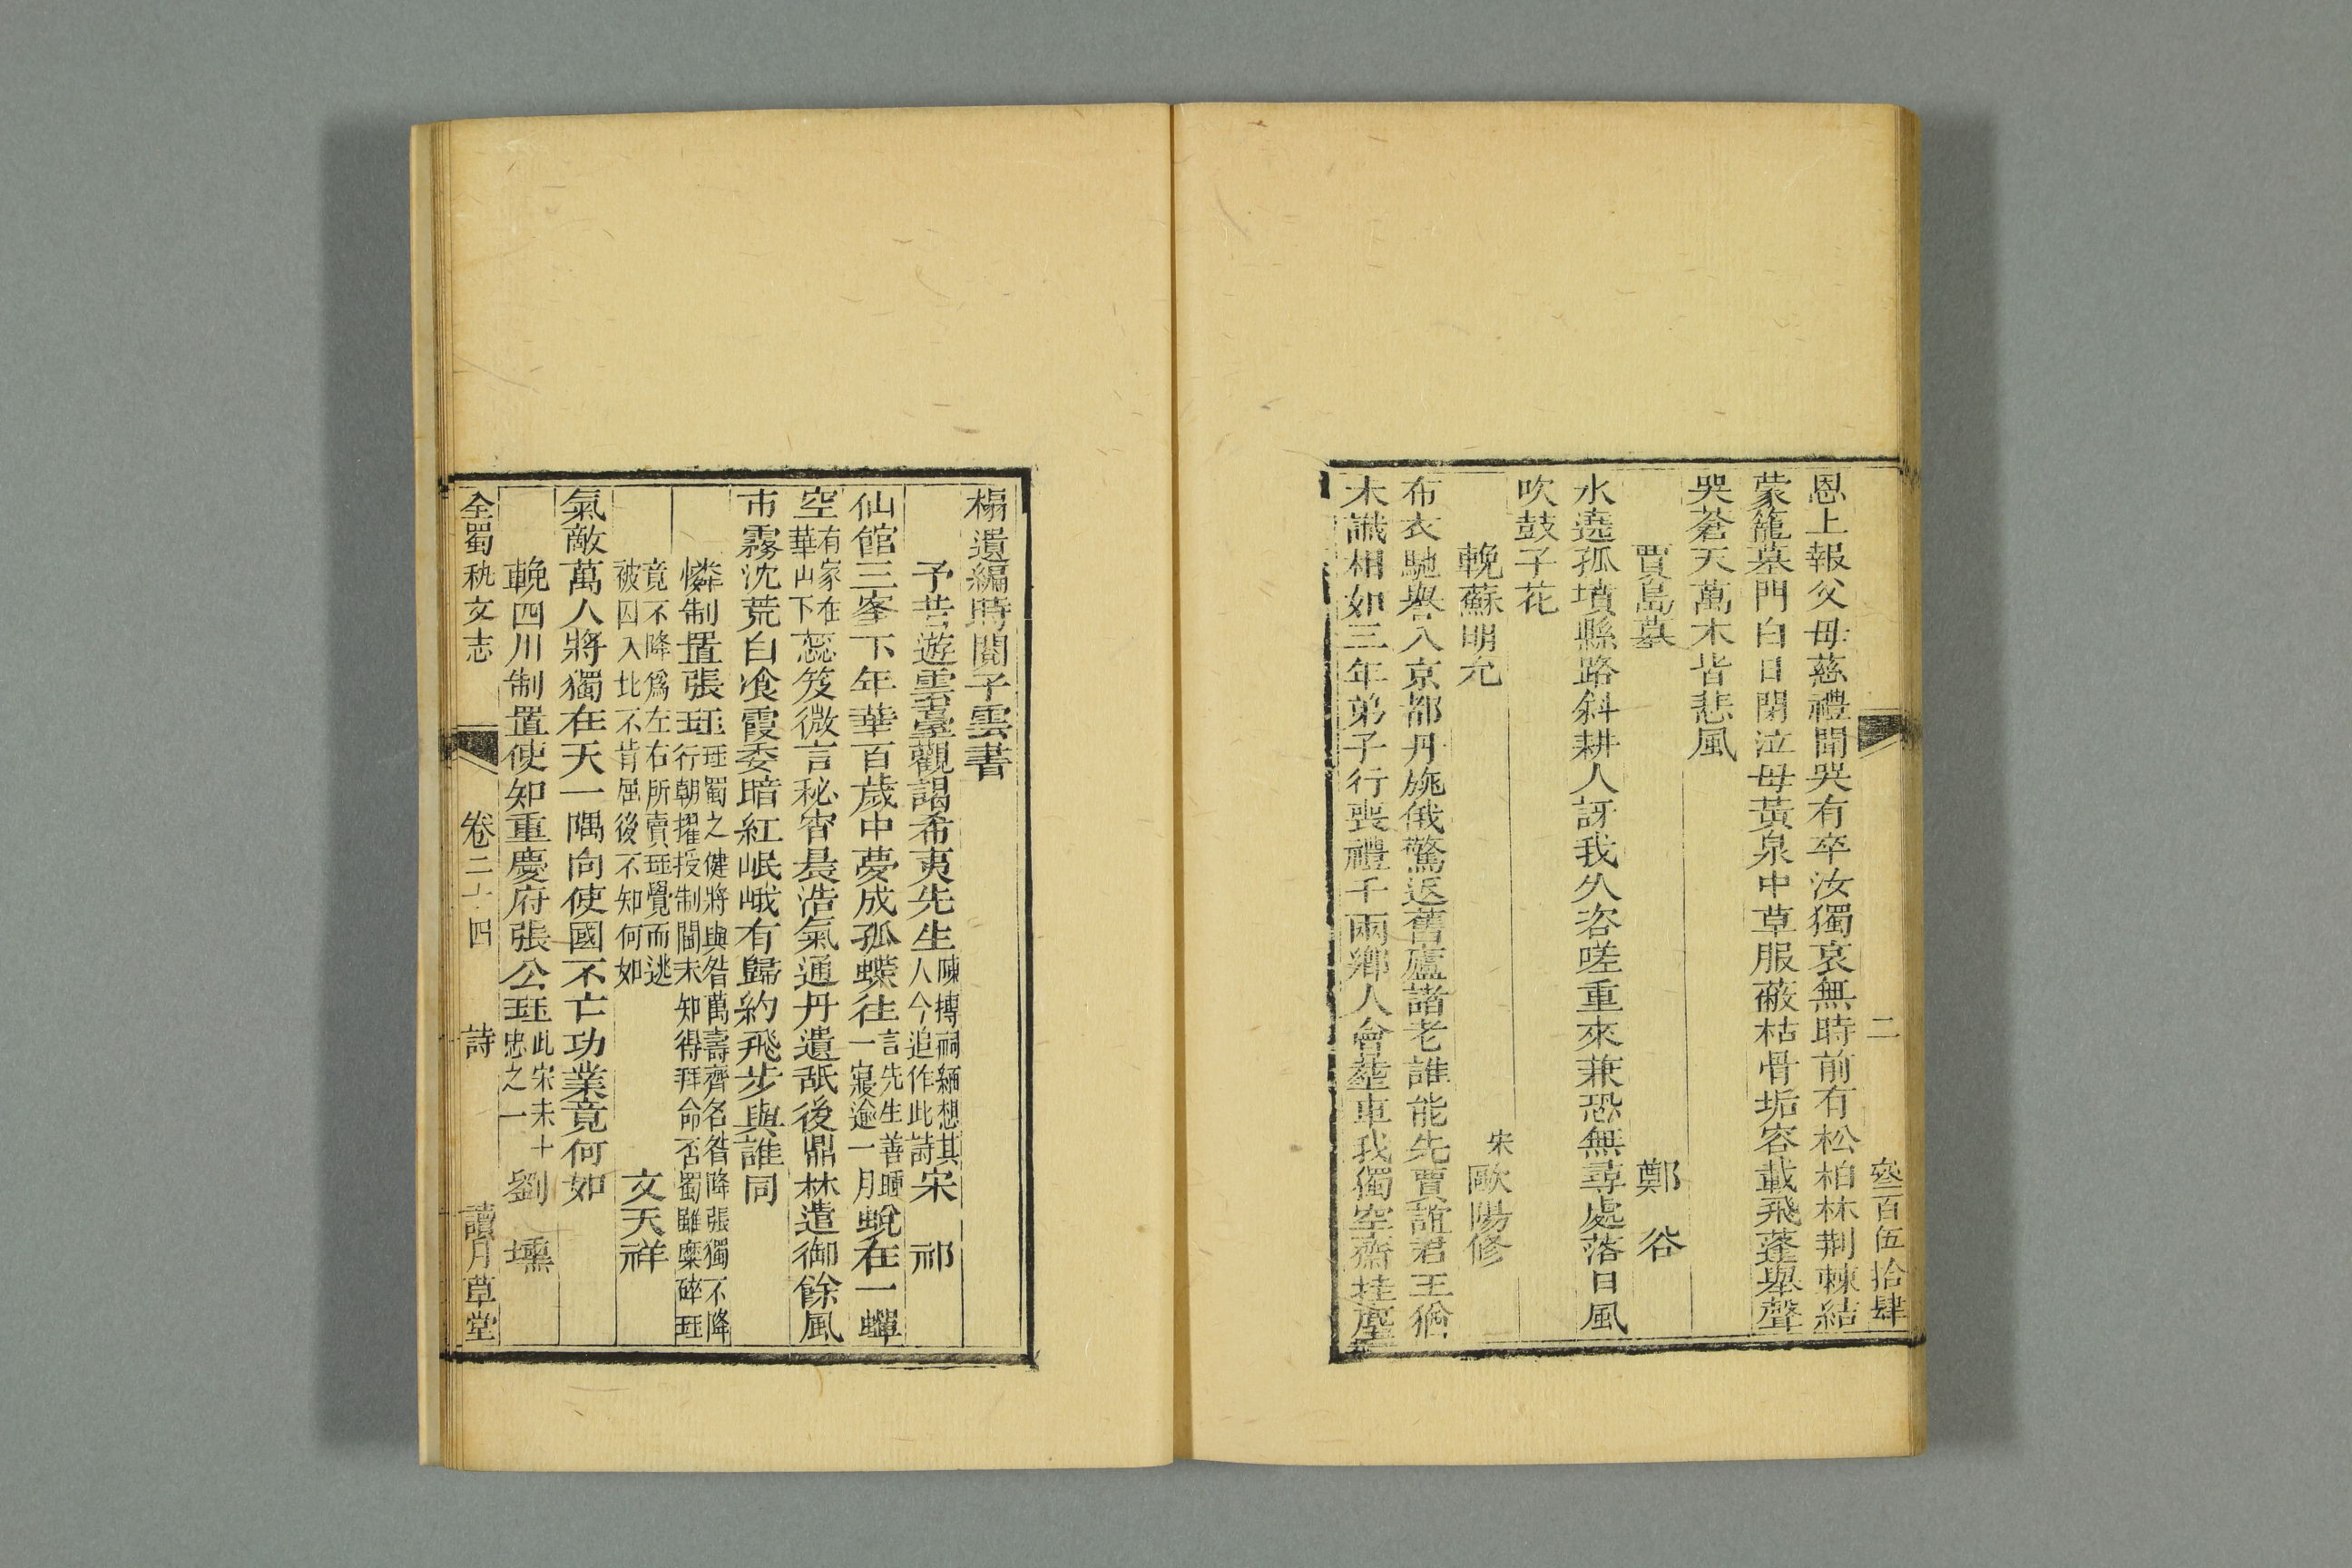 二 叄百伍拾肆
恩上報父母慈禮聞哭有卒汝獨哀無時前有松柏林荆棘結
蒙籠墓門白日閉泣母黃泉中草服蔽枯骨垢容載飛蓬舉聲
哭蒼天萬木皆悲風
賈島墓 鄭谷
水遶孤墳縣路斜耕人訝我久咨嗟重來兼恐無尋處落日風
吹鼓子花
輓蘇明允 宋歐陽修
布衣馳譽入京都丹旐俄驚返舊廬諸老誰能先賈誼君王猶
未識相如三年弟子行喪禮千兩鄉人會葬車我獨空齋挂塵
榻遺編時閱子雲書
予昔遊雲臺觀謁希夷先生陳摶祠緬想其人今追作此詩宋祁
仙館三峯下年華百歲中夢成孤蝶往言先生善睡一寢逾一月蛻在一蟬
空有冢在華山下蕊笈微言秘宵晨浩氣通丹遺舐後鼎林遣御餘風
市霧沈荒白飡霞委暗紅岷峨有歸約飛步與誰同
憐制置張珏珏蜀之健將與昝萬壽齊名昝降張獨不降行朝擢授制閫未知得拜命否蜀雖糜碎珏
竟不降爲左右所賣珏覺而逃被囚入北不肯屈後不知何如 文天祥
氣敵萬人將獨在天一隅向使國不亡功業竟何如
輓四川制置使知重慶府張公珏此宋末十忠之一 劉壎
全蜀秇文志 卷二十四 詩 讀月草堂